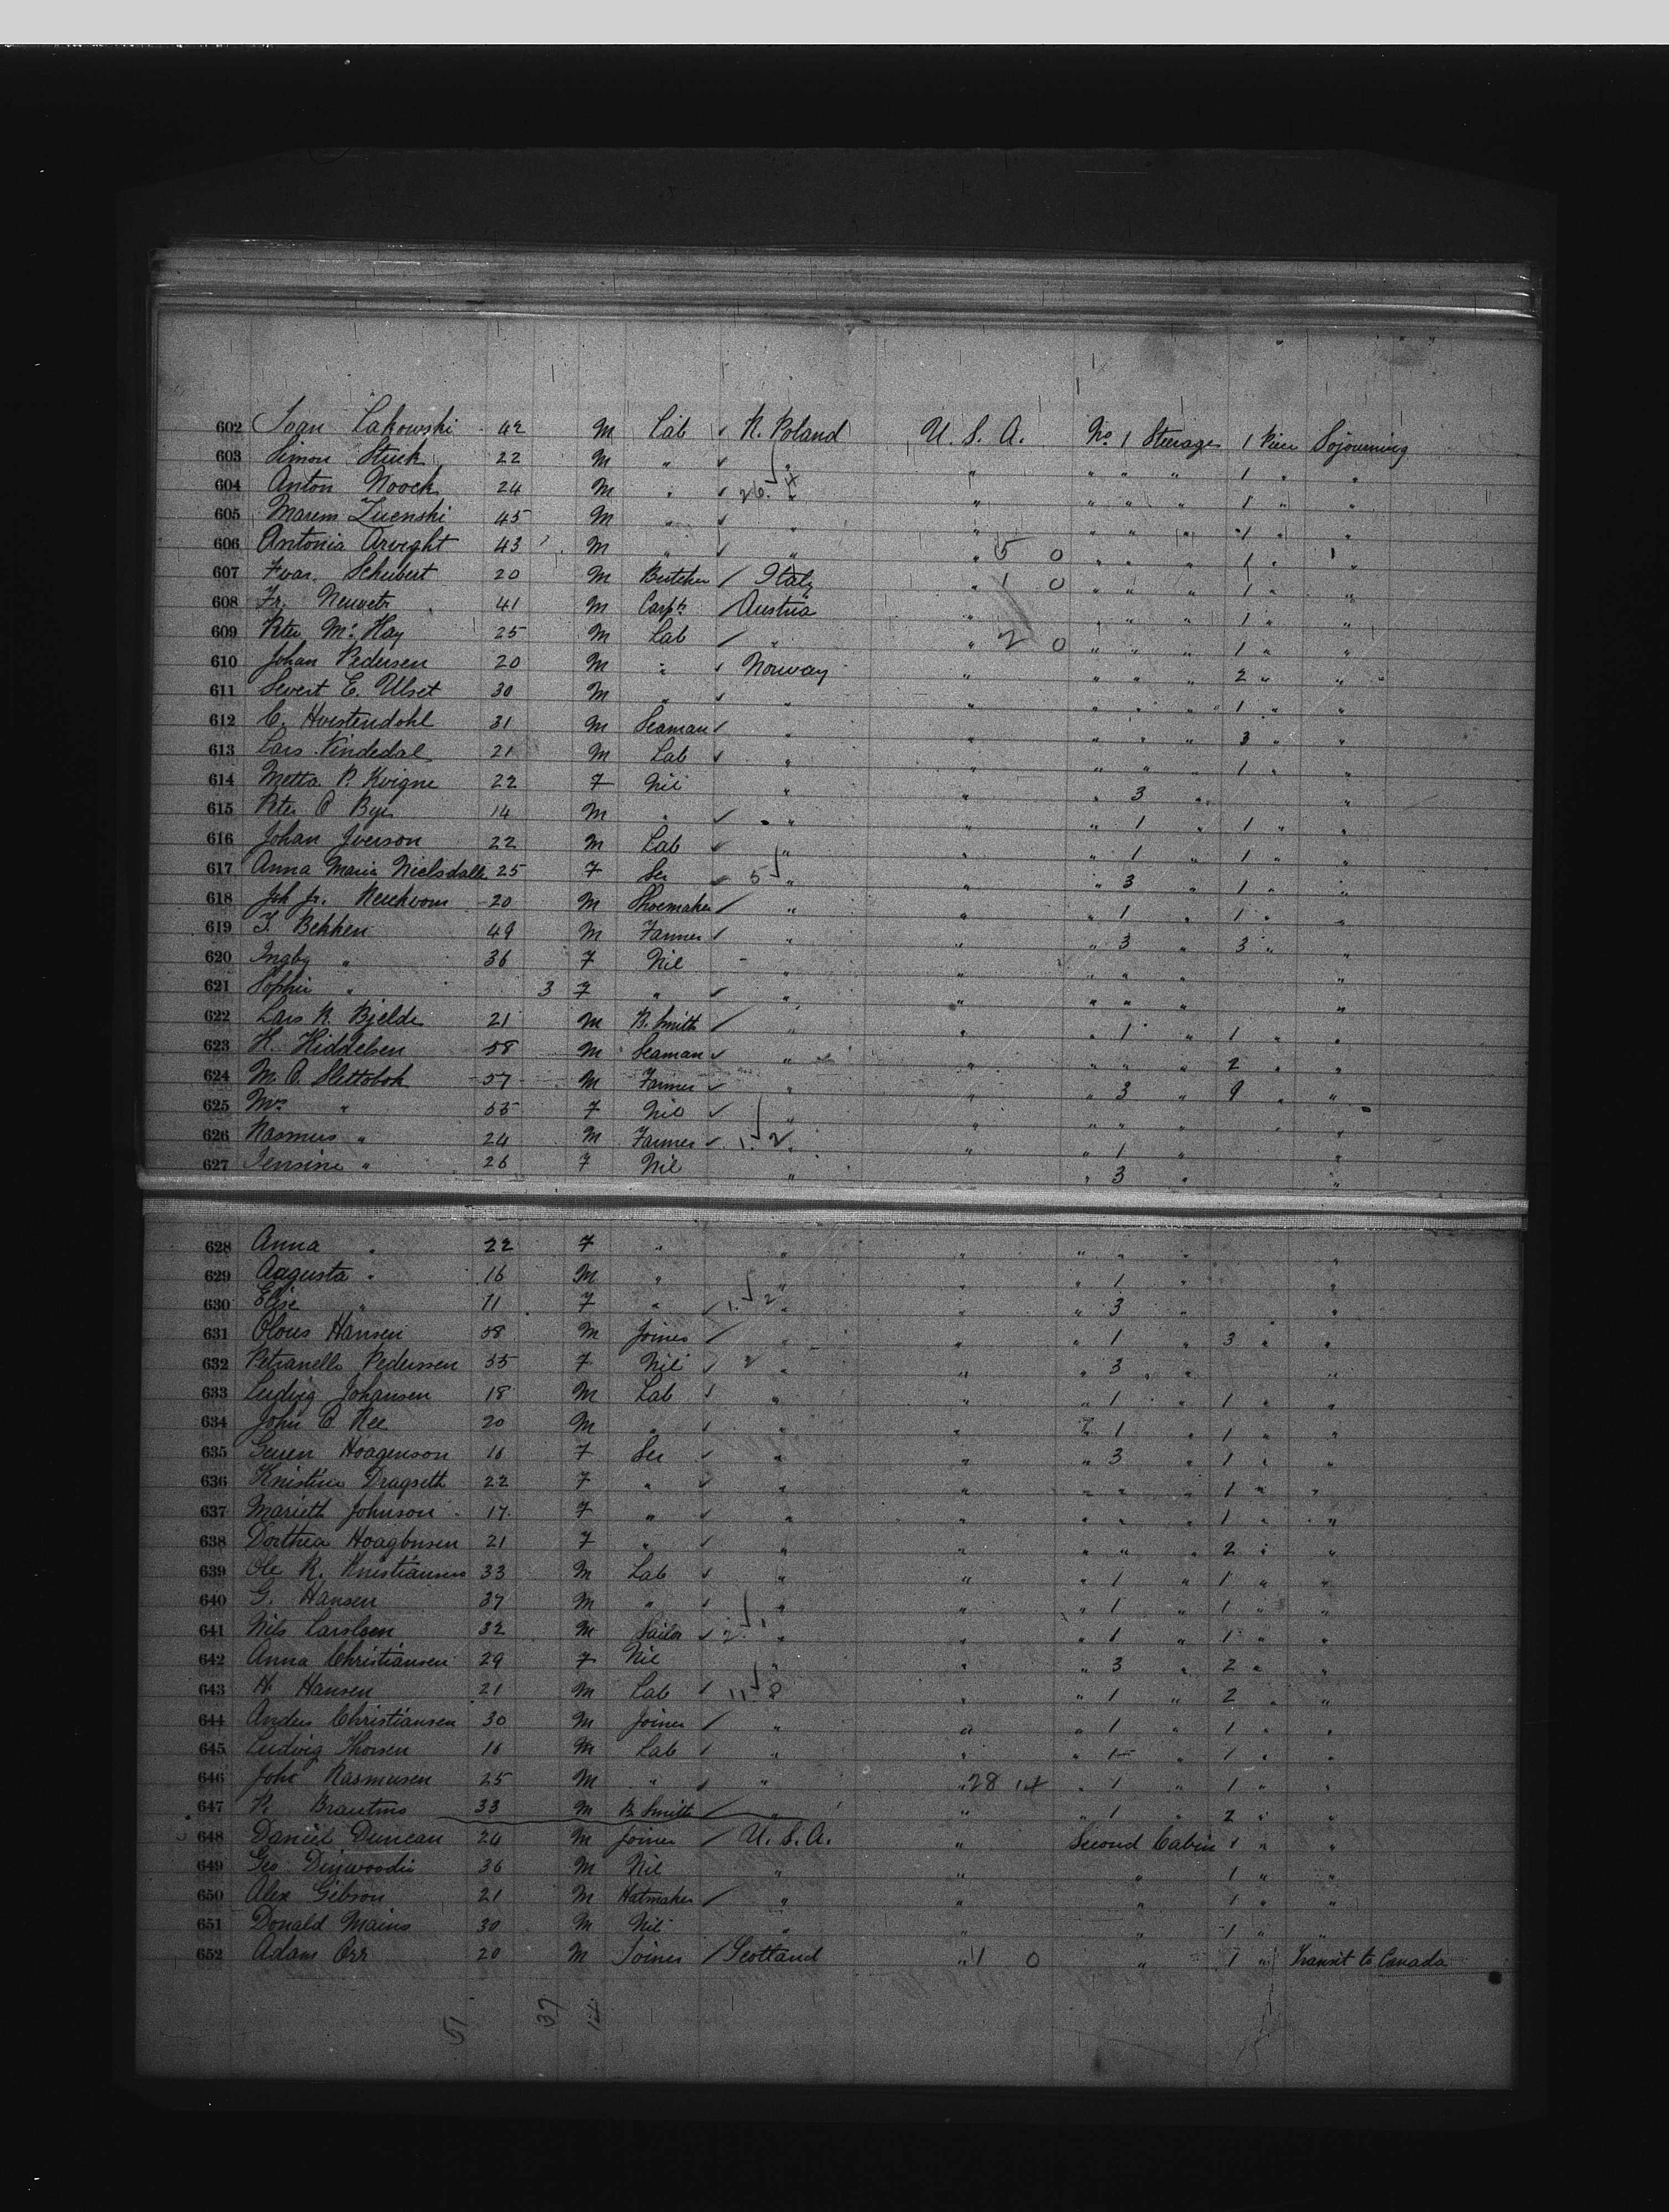 602 Ivan Lakowski 42 M Lab ✓ R. Poland U. S. A. No 1 Steerage 1 Piece Sojourning
603 Simon Stuck 22 M " ✓ " " " " " 1 " "
604 Anton Noock 24 M " ✓ 26. 4 " " " " " 1 " "
605 Marem Zuenski 45 M " ✓ " " " " " 1 " "
606 Antonia Arveght 43 M " ✓ " " 5 0 " " " 1 " "
607 Fvar. Schubert 20 M Butcher / Italy " 1 0 " " " 1 " "
608 Fr. Neuvetr 41 M Carptr / Austria " " " " 1 " "
609 Peter Mc Hay 25 M Lab / " " 2 0 " " " 1 " "
610 Johan Pedersen 20 M " ✓ Norway " " " " 2 " "
611 Severt E. Ulset 30 M " ✓ " " " " " 1 " "
612 C. Hvistendahl 31 M Seaman ✓ " " " " " 3 " "
613 Lars Vindedal 21 M Lab ✓ " " " " " 1 " "
614 Metta P. Kvigne 22 F Nil " " " 3 " "
615 Peter O Bye 14 M " ✓ " " " 1 " 1 " "
616 Johan Iverson 22 M Lab ✓ " " " 1 " 1 " "
617 Anna Maria Nielsdatte 25 F Ser ✓ 5 " " " 3 " 1 " "
618 Joh Jr. 20 M Shoemaker / " " " 1 " 1 " "
619 T. Bekken 49 M Farmer ✓ " " " 3 " 3 " "
620 Ingby " 36 F Nil - " " " " " "
621 Sophie " 3 F " ✓ " " " " " "
622 Lars R. Bjelde 21 M B. Smith / " " " 1 " 1 " "
623 K. Hiddelsen 58 M Seaman ✓ " " " " " 2 " "
624 M. O. Slettebok 57 M Farmer ✓ " " " 3 " 9 " "
625 Mrs " 55 F Nil ✓ " " " " " " "
626 Rasmus " 24 M Farmer ✓ 1. 2 " " " 1 " "
627 Jensine " 26 F Nil " " " 3 " "
628 Anna " 22 F " " " " " " "
629 Augusta " 16 M " " " " 1 " "
630 Elise " 11 F " ✓ 1. 2 " " " 3 " "
631 Olous Hansen 58 M Joiner / " " " 1 " 3 " "
632 Petranelle Pederssen 55 F Nil ✓ 2 " " " 3 " "
633 Ludvig Johansen 18 M Lab ✓ " " " 1 " 1 " "
634 John O. Nee 20 M " ✓ " " " 1 " 1 " "
635 Hoagenson 16 F Ser ✓ " " " 3 " 1 " "
636 Kristine Dragseth 22 F " ✓ " " " " " 1 " "
637 Marieth Johnson 17 F " ✓ " " " " " 1 " "
638 Dorthea Hoagbnsen 21 F " ✓ " " " " " 2 " "
639 Ole R. Kristiansen 33 M Lab ✓ " " " 1 " 1 " "
640 G. Hansen 37 M " ✓ " " " 1 " 1 " "
641 Nils Larslsen 32 M Sailor ✓ 2 1 " " " 1 " 1 " "
642 Anna Christiansen 29 F Nil " " " 3 " 2 " "
643 H. Hansen 21 M Lab ✓ 11 8 " " " 1 " 2 " "
644 Anders Christiansen 30 M Joiner / " " " 1 " 1 " "
645 Ludvig Thorsen 16 M Lab ✓ " " " 1 " 1 " "
646 Joh Rasmusen 25 M " ✓ " " 28 14 " 1 " 1 " "
647 P. Brautmo 33 M B. Smith / " " " 1 " 2 " "
648 Daniel Duncan 24 M Joiner / U. S. A. " Second Cabin 1 " "
649 Geo Dinwoodie 36 M Nil " " " 1 " "
650 Alex Gibson 21 M Hatmaker / " " " 1 " "
651 Donald Mains 30 M Nil " " " 1 " "
652 Adam Orr 20 M Joiner / Scotland " 1 0 " 1 " Transit to Canada
51 37 14